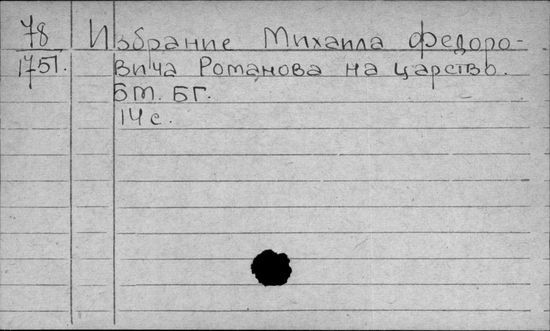 78 Избрание Михаила Федоро-
1751. вича Романова на царство.
БМ. БГ.
14 с.